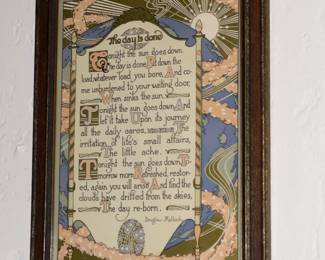 The day is done
Tonight the sun goes down.
The day is done. Put down the
load, whatever load you bore, And co-
me unburdened to your waiting door,
When sinks the sun.
Tonight the sun goes down. And
let it take Upon its journey
all the daily cares, The
irritation of life's small affairs,
The little ache.
Tonight the sun goes down. To-
morrow morn Refreshed, restor-
ed, again you will arise And find the
clouds have drifted from the skies,
The day re-born.
Douglas Malloch